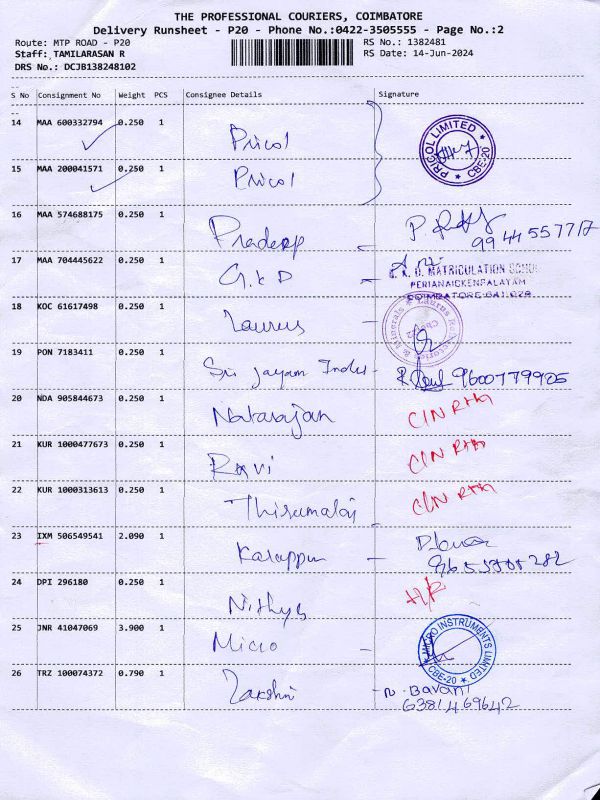 THE PROFESSIONAL COURIERS, COIMBATORE
Delivery Runsheet - P20 - Phone No.:0422-3505555 - Page No.:2
Route: MTP ROAD - P20 RS No.: 1382481
Staff: TAMILARASAN R RS Date: 14-Jun-2024
DRS No.: DCJB138248102
S No Consignment No Weight PCS Consignee Details Signature
14 MAA 600332794 0.250 1 Pricol PRICOL LIMITED CBE-20
15 MAA 200041571 0.250 1 Pricol
16 MAA 574688175 0.250 1 Pradeep P.
9944557717
17 MAA 704445622 0.250 1 G.K.D MATRICULATION
PERIANAICKENPALAYAM
COIMBATORE-641 029
18 KOC 61617498 0.250 1 Laurus
19 PON 7183411 0.250 1 Sri Jayam Indus 9600779905
20 NDA 905844673 0.250 1 Natarajan
21 KUR 1000477673 0.250 1 Ravi
22 KUR 1000313613 0.250 1 Thirumalai
23 IXM 506549541 2.090 1 Karappu
24 DPI 296180 0.250 1 Nithya
25 JNR 41047069 3.900 1 Micro MICRO INSTRUMENTS LIMITED CBE-20
26 TRZ 100074372 0.790 1 Lakshmi n. Bavani
6381469642